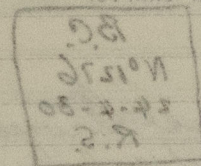 B.C.
Nº 1276
24-4-30
R.S.